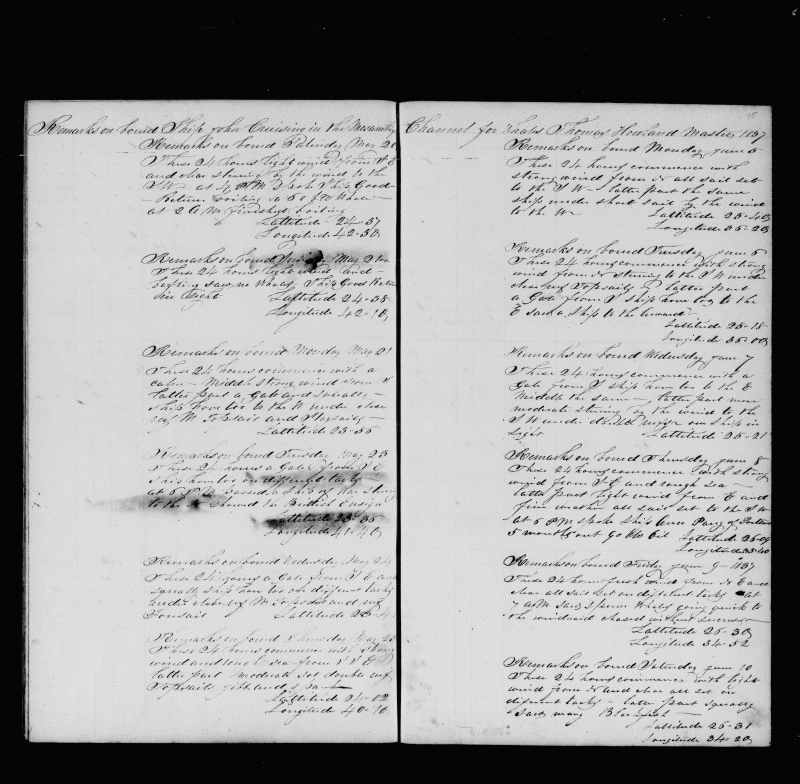 Remarks on bourd Ship John Cruising in the Mosambiq
Remarks on bourd Saturday May 20
These 24 hours light wind from N E
and clear stearing by the wind to the
at 4 P M Spoke Ship Good
Return boiling a 50 Whale
at 2 A M finished boiling
Lattitude 24-37
Longitude 42-30
Remarks on bourd May 21
These 24 hours light wind and
saw no Whales Ship Good Return
in Sight
Lattitude 24-38
Longitude 42-10
Remarks on bourd Monday May 2
These 24 hours commence with a
calm - Middle strong wind from S
latter part a Gale and
Ship hove too to the W under close
reef M Topsail and
Lattitude 23-55
Remarks on bourd Tuesday May 23
These 24 hours a Gale from S E
Ship hove too on different tacks
at 5 P M passed a Ship of War
to the showed the British Ensign
Lattitude 23-35
Longitude 41-40
Remarks on bourd Wednesday May 24
These 24 hours a Gale from S E and
squally Ship hove too on different tacks
under close reef M Topsail and reef
Foresail Lattitude 23-4
Remarks on bourd Thursday May 25
These 24 hours commence with strong
wind and rough sea from S S E
latter part moderate set double reef
Topsails
Lattitude 24-02
Longitude 40-10
Channel for Whales Thomas Howland Master 1837
Remarks on bourd Monday June 5
These 24 hours commence with
strong wind from N all sail set
to the S W - latter part the same
ship under short sail by the wind
to the W Lattitude 25-40
Longitude 35-20
Remarks on bourd Tuesday June 6
These 24 hours commence with strong
wind from N stearing to the S W under
close reef Topsails latter part
a Gale from S ship hove too to the
E saw a Ship to the leward
Lattitude 25-18
Longitude 35-00
Remarks on bourd Wednesday June 7
These 24 hours commence with a
Gale from S ship hove too to the E
Middle the same - latter part more
moderate stearing by the wind to the
S W under double reefs one Ship in
Sight Lattitude 25-21
Remarks on bourd Thursday June 8
These 24 hours commence with strong
wind from S E and rough sea -
latter part light wind from E and
fine weather all sail set to the S W
at 5 P M spoke Ship Ann Parry of Portsm
5 months out 90 bbls Oil Lattitude 26-09
Longitude 35-40
Remarks on bourd Friday June 9 - 1837
These 24 hours fresh wind from N E and
clear all sail set on different tacks at
7 A M Saw Sperm Whales going quick to
the windward chased without success
Lattitude 25-30
Longitude 34-52
Remarks on bourd Saturday June 10
These 24 hours commence with light
wind from N and clear all set on
different tacks - latter part squally
saw many
Lattitude 25-31
Longitude 34-20